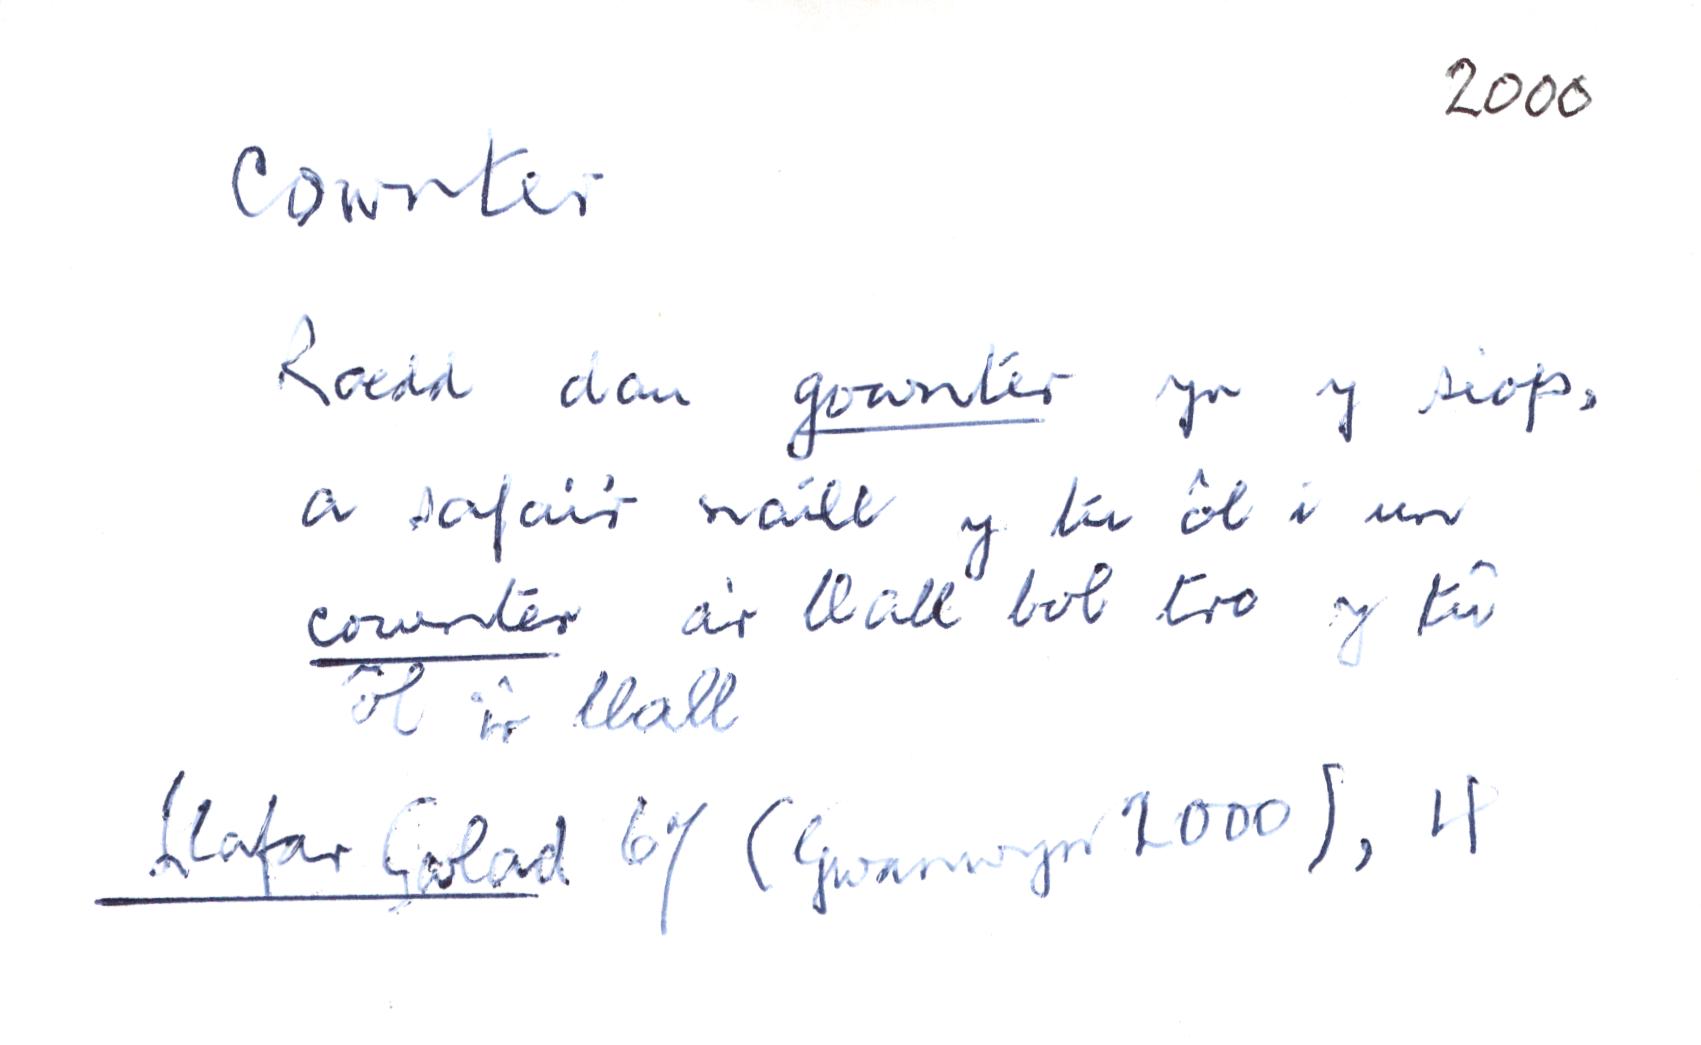 2000
Cownter
Roedd dau gownter yn y siop,
a safai'r naill y tu ôl i un
cownter a'r llall bob tro y tu
ôl i'r llall
Llafar Gwlad 67 (Gwanwyn 2000), 4